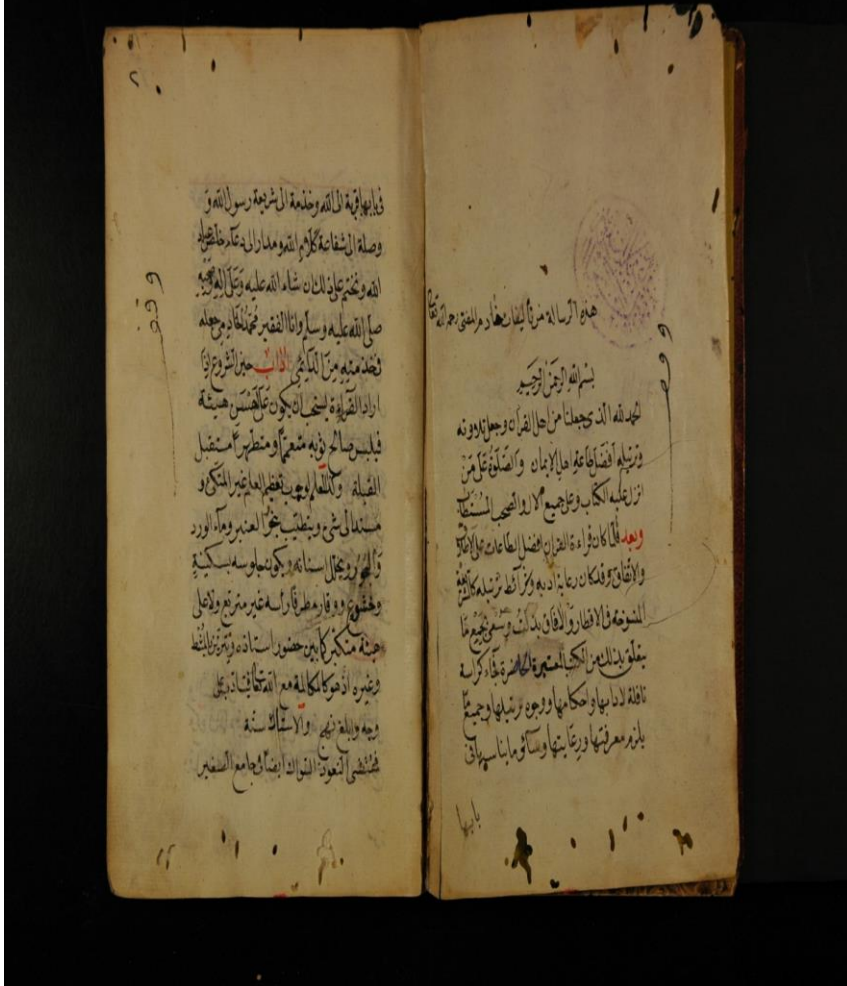 هذه الرسالة من تأليفات خادم المفتى رحمه الله تعالى
وقف
بسم الله الرحمن الرحيم
الحمد لله الذى جعلنا من اهل القرآن وجعل تلاوته
وترتيله افضل طاعة اهل الايمان والصلوة على من
انزل عليه الكتاب وعلى جميع الال والصحب
وبعد فلما كان قراءة القرآن افضل الطاعات على
والاتفاق وقد كان رعاية ادبه و ترتيله
فى الاقطار والافاق بذلت وسعى بجميع ما
يتعلق بذلك من الكتب المعتبرة الحاضرة فجاء كراسة
نافلة لادابها واحكامها ووجوه ترتيلها وجميع ما
يلزم معرفتها ورعايتها وسائر ما يناسبها فى
بابها
فى بابها قربة الى الله وخدمة الى شريعة رسول الله و
وصلة الى شفاعة كلام الله ومدار الى دعاء خلص عباد
الله ونختم على ذلك ان شاء الله عليه وعلى اله وصحبه
صلى الله عليه وسلم وانا الفقير محمد الخادم جعله
من اداب حين الشروع اذا
اراد القراءة يستحب ان يكون على احسن هيئة
فيلبس صالح ثوبه متعمما ومتطهرا مستقبل
القبلة وكذا المعلم لوجوب تعظيم العلم غير المتكئ و
مستندا الى شئ ويتطيب بنحو العنبر وماء الورد
ويخلل اسنانه ويكون جلوسه بسكينة
وخشوع ووقار مطرقا رأسه غير متربع ولا على
هيئة متكبر كما بين حضور استاذه ويتزين بالمشط
وغيره اذ هو كالمكالمة مع الله تعالى فيتأدب على
وجه وابلغ نهج والاستياك سنة
السواك ايضا فى جامع الصغير
وقف